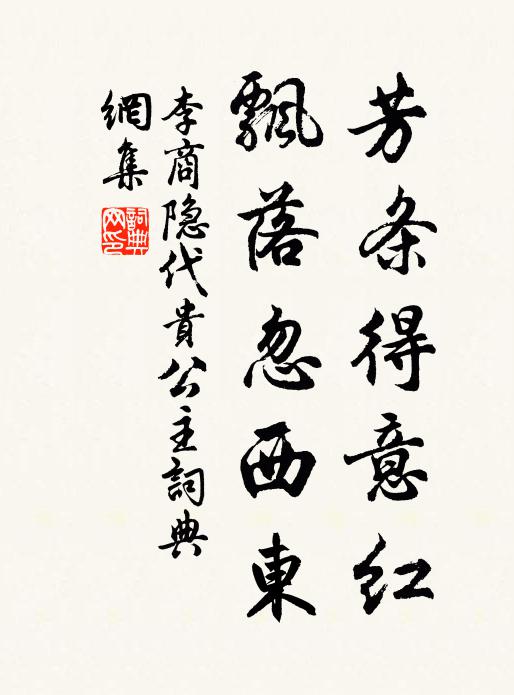 芳条得意红
飘落忽西東
李商隐代貴公主詞典
網集
詞典网印